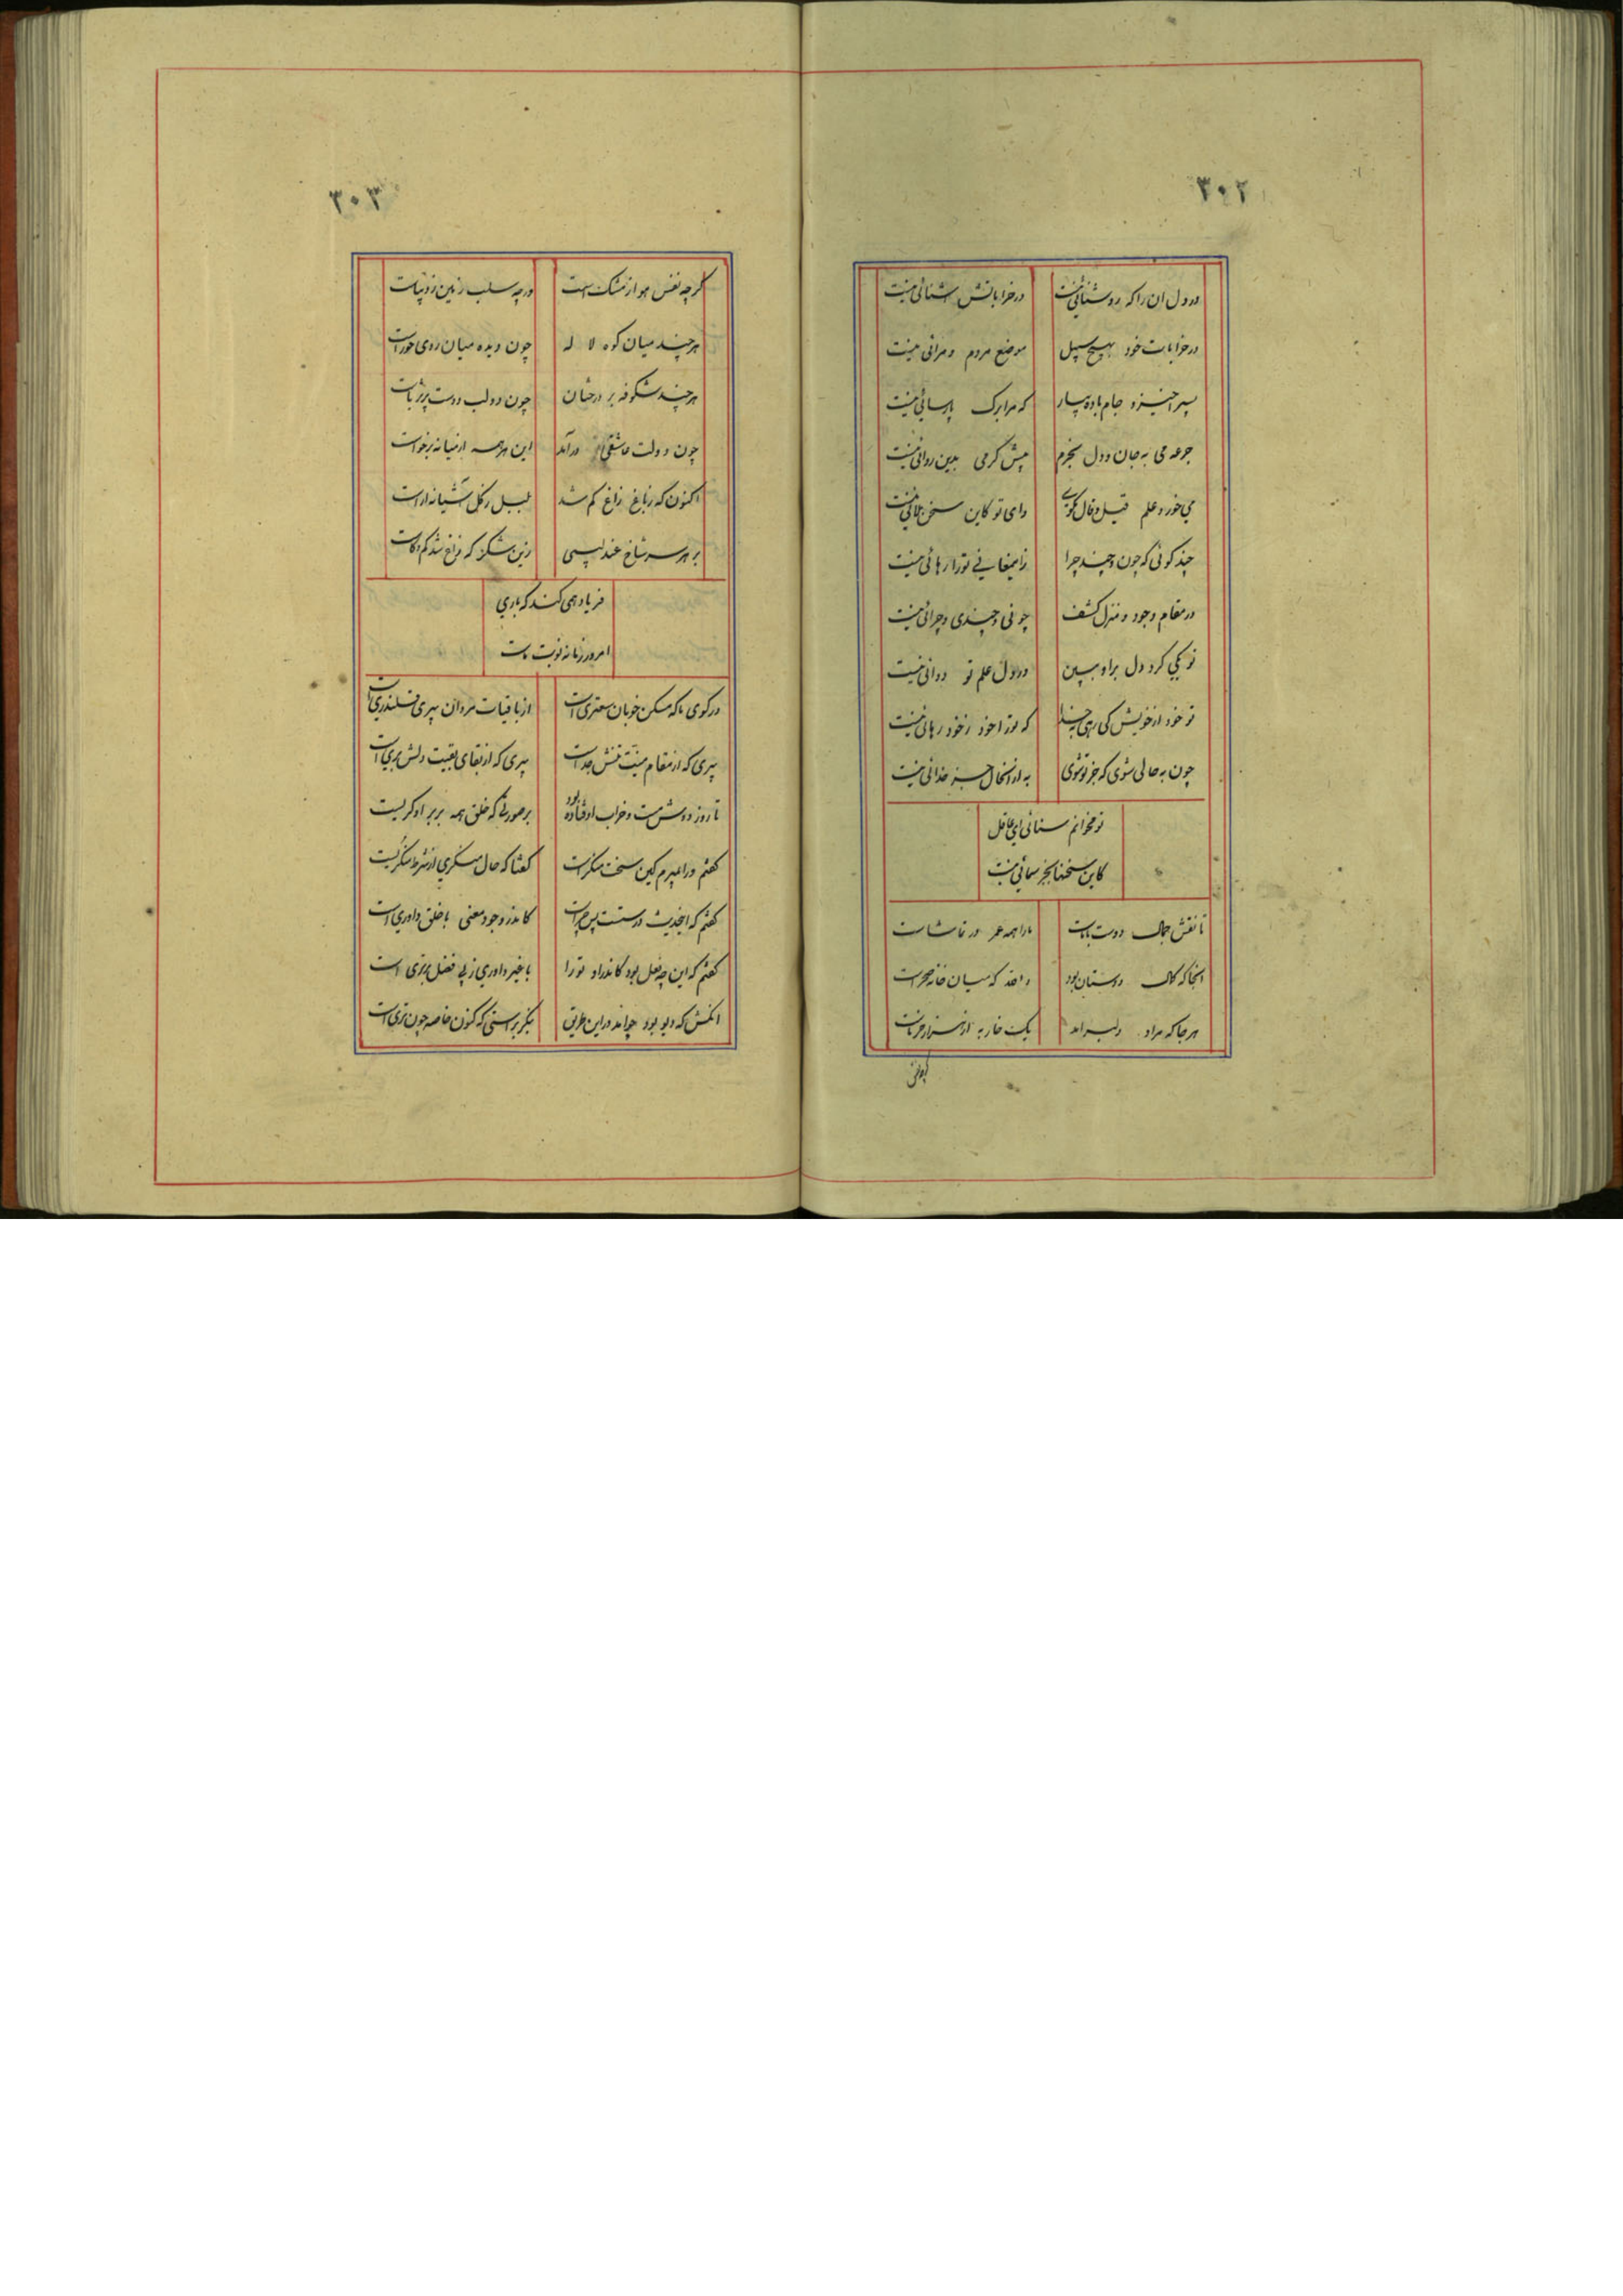 ۳۰۲
در دل آن را که روشنائی نیست در خراباتش آشنائی نیست
در خرابات خود بهیچ سبیل موضع مردم و مرائی نیست
پسرا خیز و جام باده بیار که مرا برک پارسائی نیست
جرعه می به جان و دل بخرم پیش کس می بدین روائی نیست
می خور و علم قیل و قال مگوی وای تو کاین سخن ملائی نیست
چند گوئی که چون و چند چرا زین معانی تو را رهائی نیست
در مقام وجود و منزل کشف چونی و چندی و چرائی نیست
تو یکی گرد دل برا و ببین در دل علم تو دوائی نیست
تو خود از خویش کی رهی بخدا که تو را خود ز خود رهائی نیست
چون به حالی شوی که جز تو شوی به از آنحال جز خدائی نیست
تو مخوانم سنائی ای غافل
کاین سخنها بجز سمائی نیست
تا نقش جمال دوست با ماست ما را همه عمر در تماشاست
آنجا که کمال دوستان بود والله که میان خانه صحراست
هرجا که مراد دلبر آمد یک خار به از هزار خرماست
۳۰۳
گرچه نفس هوا ز مشک است ورچه سلب زمین ز دیباست
هرچند میان کوه لاله چون دیده میان روی حوراست
هرچند شکوفه بر درختان چون دو لب دوست پر ثریاست
چون دولت عاشقی در آمد این هرسه از میانه برخاست
اکنون که ز باغ زاغ کم شد بلبل ز گل آشیانه آراست
بر هر سر شاخ عندلیبی زین شکر که زاغ شد کم و کاست
فریاد همی کند که باری
امروز زمانه نوبت ماست
در کوی ما که مسکن خوبان سعتری است از باقیات مردان پیری قلندری است
پیری که از مقام منیت تنش جداست پیری که از بقای بقیت دلش بری است
تا روز دوش مست و خراب اوفتاده بود بر صورتی که خلق همه بر بر او گریست
گفتم ورا بمیرم کین سخت منکر است گفتا که حال منکری از شرط منکریست
گفتم که اینحدیث درست است پس چراست کاندر وجود معنی با خلق داوری است
گفتم که این چه فعل بود کاندر او تو را با غیر داوری ز پی فضل برتری است
آنکس که دیو بود چو آمد در این طریق بنگر براستی که کنون خاصه چون پری است